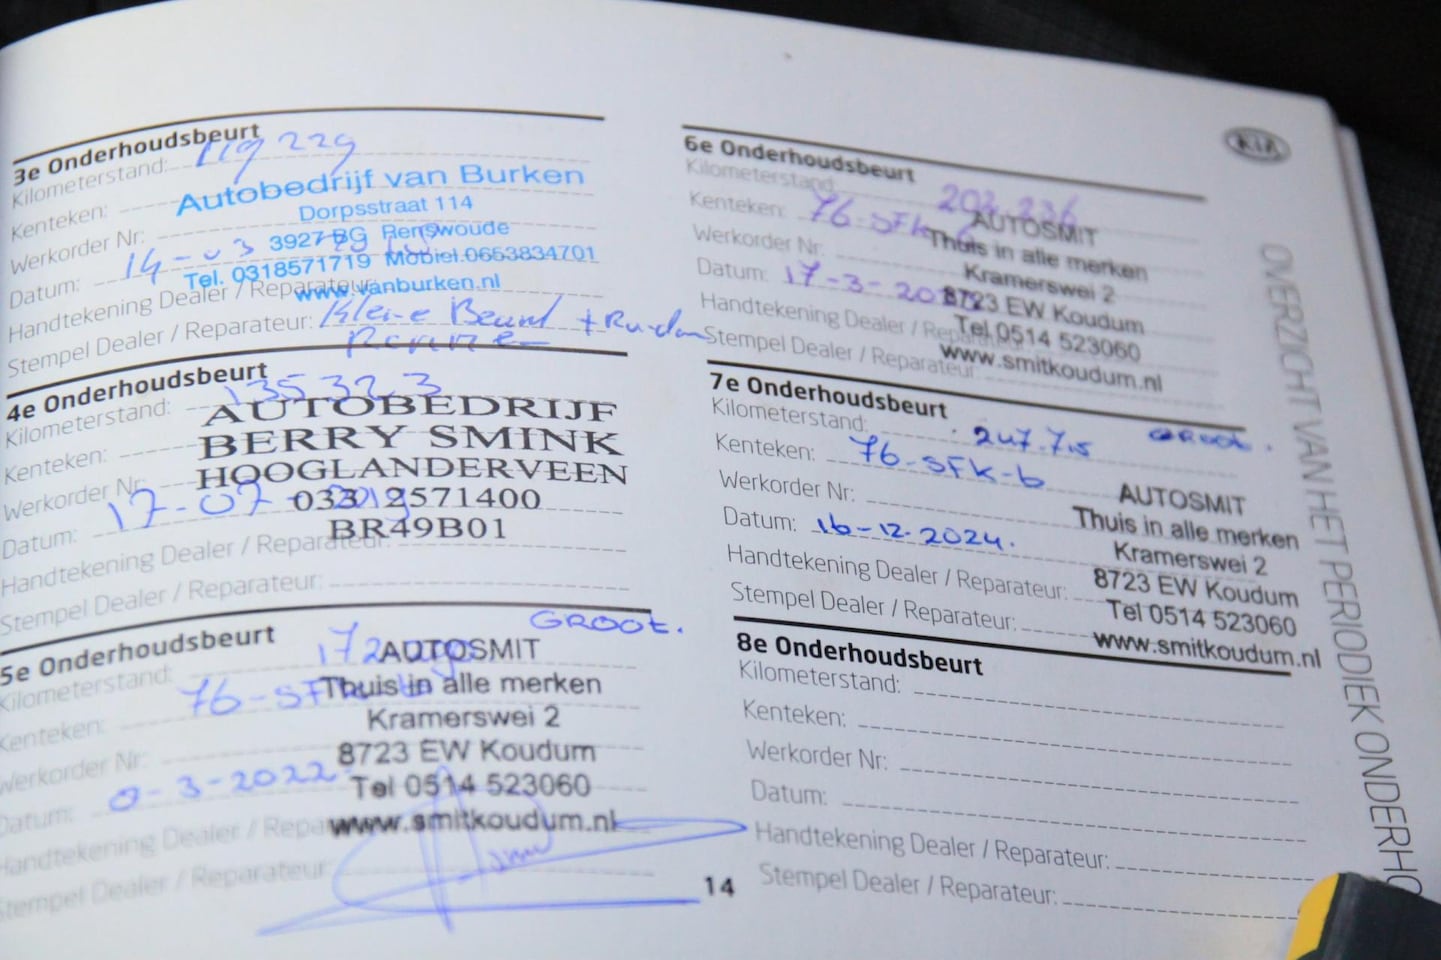 3e Onderhoudsbeurt
Kilometerstand: 119 229
Kenteken:
Autobedrijf van Burken
Dorpsstraat 114
Werkorder Nr:
3927 BG Renswoude
Datum: 14-03
Tel. 0318571719 Mobiel.0653834701
www.vanburken.nl
Handtekening Dealer / Reparateur:
Stempel Dealer / Reparateur: Kleine Beurt +
4e Onderhoudsbeurt
Kilometerstand: 135323
AUTOBEDRIJF
Kenteken:
BERRY SMINK
Werkorder Nr:
HOOGLANDERVEEN
Datum: 17-07-2019
033 2571400
BR49B01
Handtekening Dealer / Reparateur:
Stempel Dealer / Reparateur:
GROOT.
5e Onderhoudsbeurt
Kilometerstand: 172
AUTOSMIT
Kenteken: 76-SFK
Thuis in alle merken
Kramerswei 2
Werkorder Nr:
8723 EW Koudum
Datum: -3-2022
Tel 0514 523060
www.smitkoudum.nl
Handtekening Dealer / Reparateur:
Stempel Dealer / Reparateur:
14
6e Onderhoudsbeurt
Kilometerstand: 202 236
Kenteken: 76-SFK
AUTOSMIT
Thuis in alle merken
Werkorder Nr:
Kramerswei 2
Datum: 17-3-
8723 EW Koudum
Handtekening Dealer / Reparateur:
Tel 0514 523060
Stempel Dealer / Reparateur:
www.smitkoudum.nl
7e Onderhoudsbeurt
Kilometerstand: 247.715 GROOT.
Kenteken: 76-SFK-6
AUTOSMIT
Werkorder Nr:
Thuis in alle merken
Datum: 16-12-2024.
Kramerswei 2
8723 EW Koudum
Handtekening Dealer / Reparateur:
Tel 0514 523060
Stempel Dealer / Reparateur:
www.smitkoudum.nl
8e Onderhoudsbeurt
Kilometerstand:
Kenteken:
Werkorder Nr:
Datum:
Handtekening Dealer / Reparateur:
Stempel Dealer / Reparateur:
KIA
OVERZICHT VAN HET PERIODIEK ONDERHO